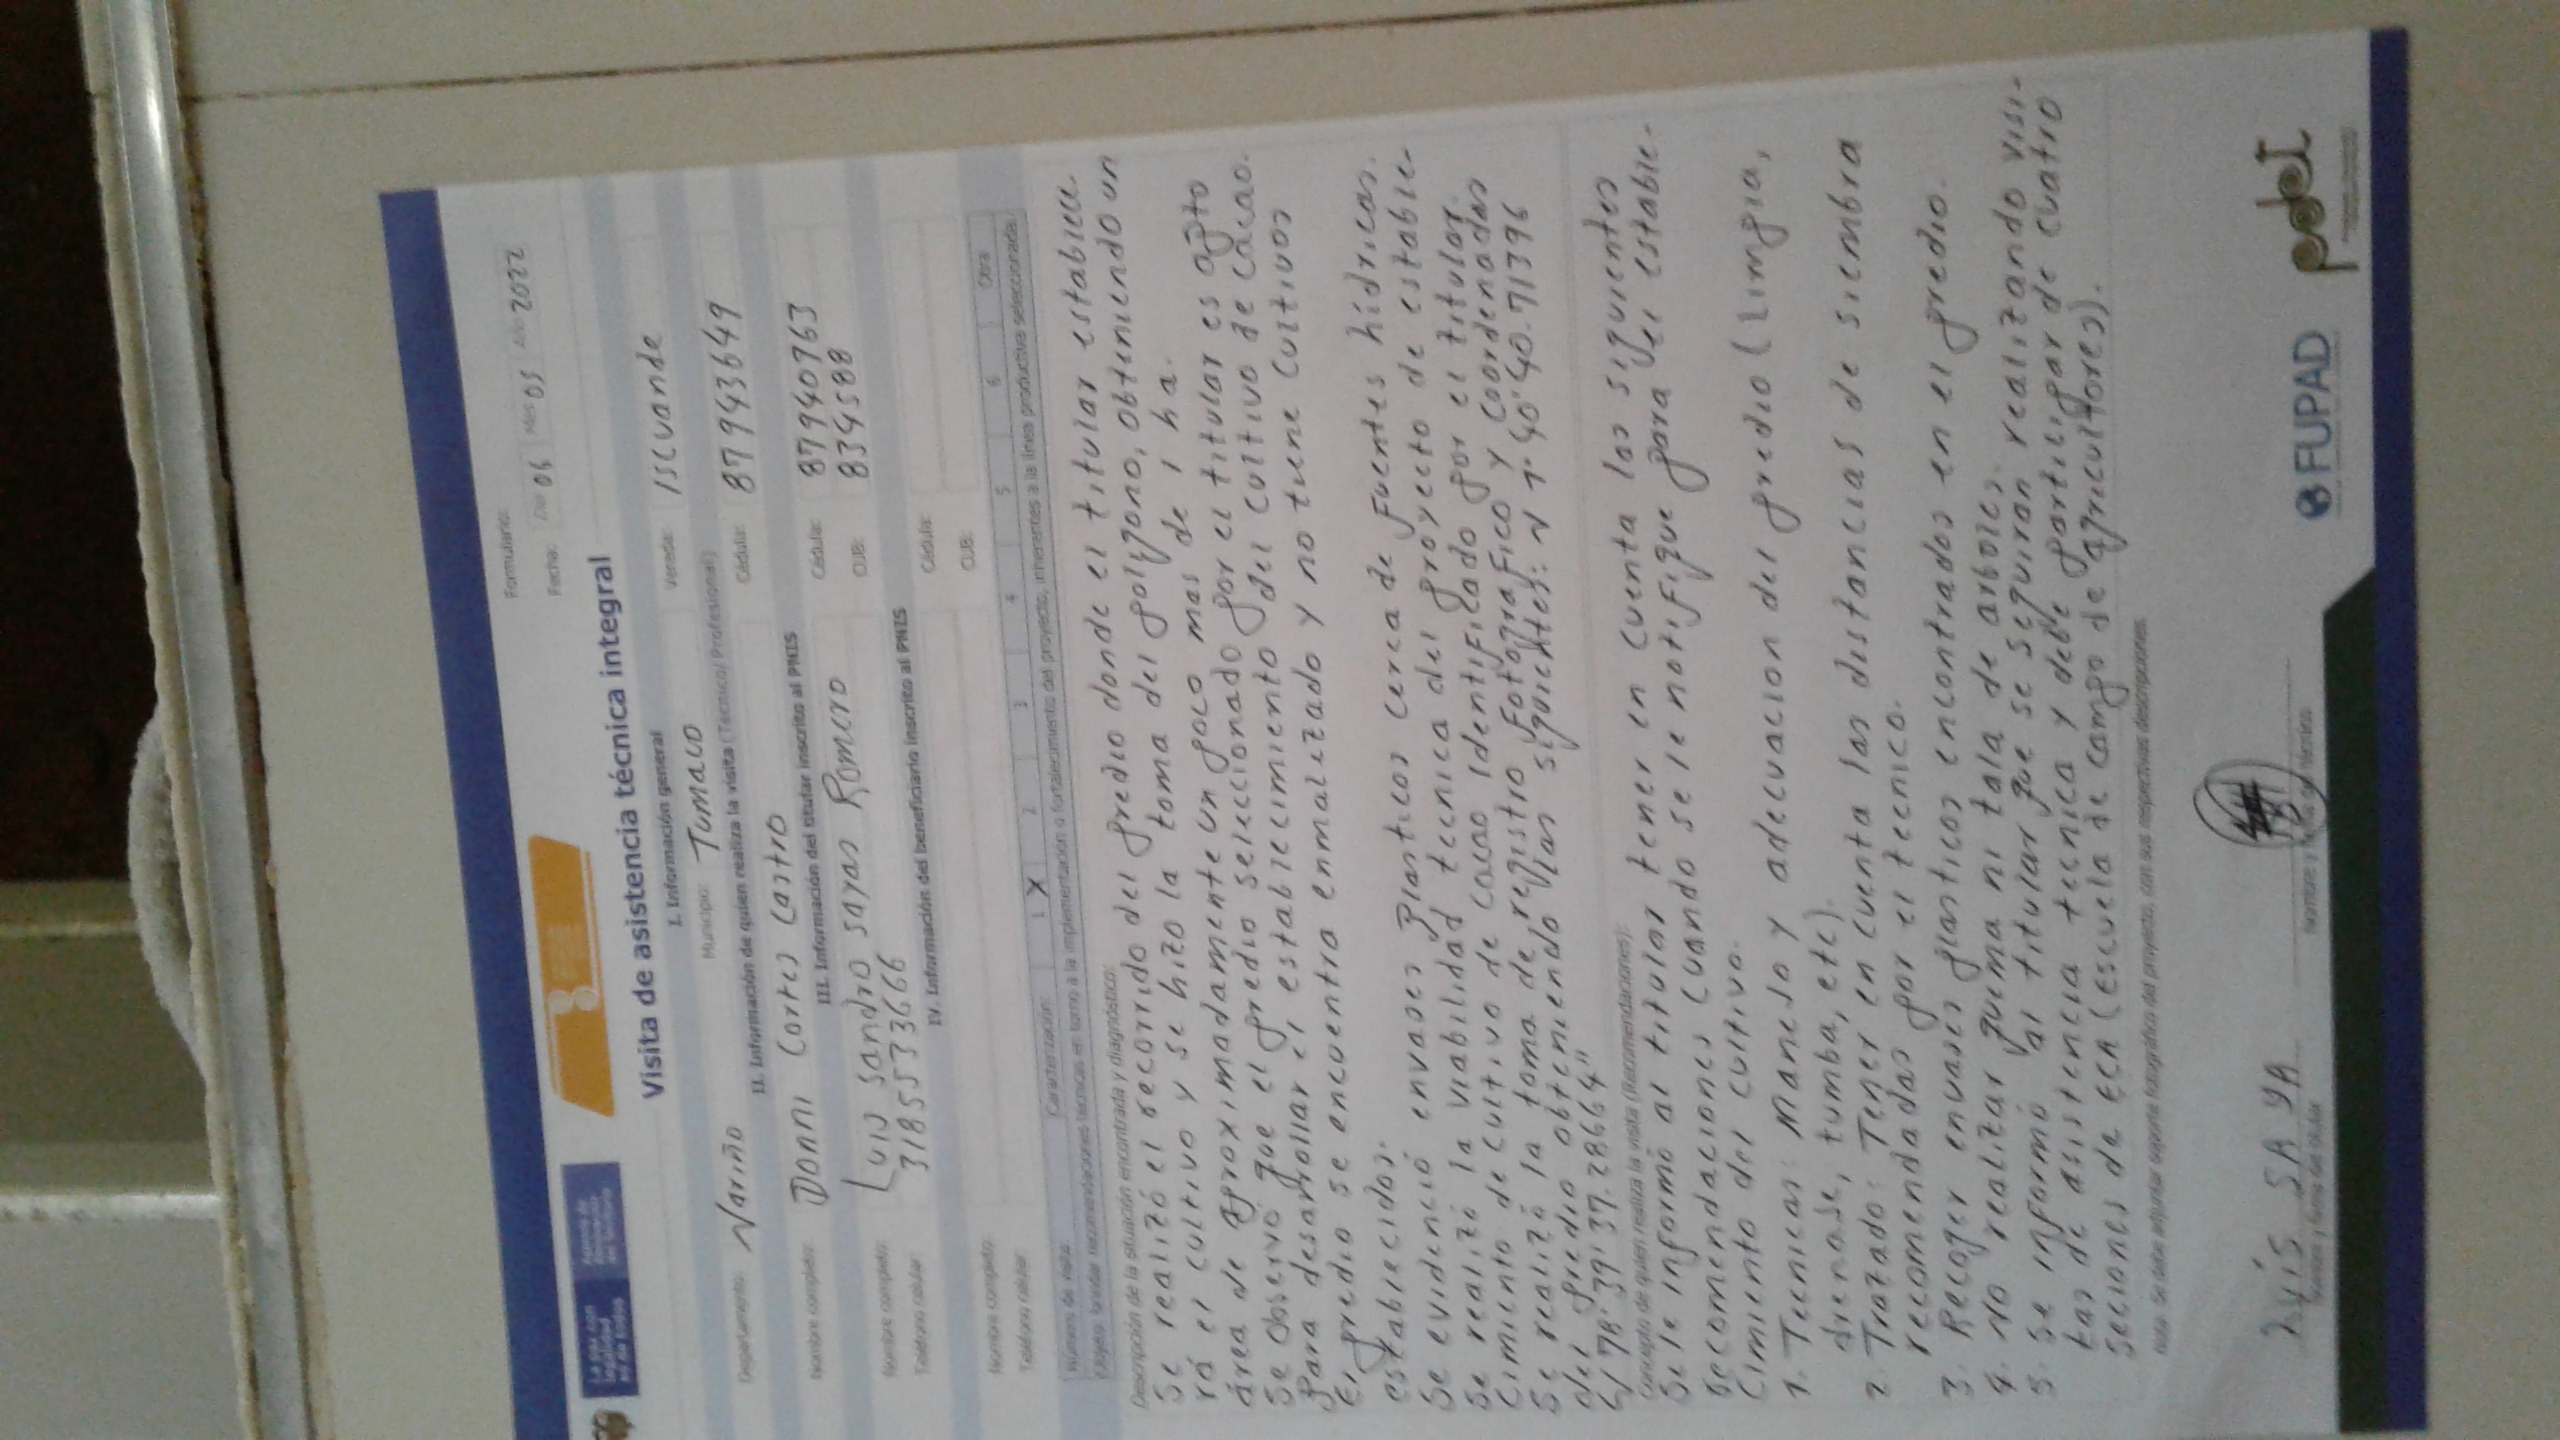 Formulario:
Fecha: Día 06 Mes 05 Año 2022
Visita de asistencia técnica integral
I. Información general
Departamento: Nariño Municipio: Tumaco Vereda: Iscuande
II. Información de quien realiza la visita (Técnico/Profesional)
Nombre completo: Donni Cortes Castro Cédula: 87943649
III. Información del titular inscrito al PNIS
Nombre completo: Luis Sandro Sayas Romero Cédula: 879440963
Teléfono celular: 3185533666 CUB: 8394588
IV. Información del beneficiario inscrito al PNIS
Nombre completo: Cédula:
Teléfono celular: CUB:
Número de visita: Caracterización: 1 X 2 3 4 5 6 Otra
Objeto: brindar recomendaciones técnicas en torno a la implementación o fortalecimiento del proyecto, inherentes a la línea productiva seleccionada.
Descripción de la situación encontrada y diagnóstico:
Se realizó el recorrido del predio donde el titular establece-
rá el cultivo y se hizo la toma del polygono, obteniendo un
área de aproximadamente un poco mas de 1 ha.
Se observó que el predio seleccionado por el titular es apto
para desarrollar el establecimiento del cultivo de cacao.
El predio se encuentra enmalezado y no tiene cultivos
establecidos.
Se evidenció envases plasticos cerca de fuentes hídricas.
Se realizó la viabilidad tecnica del proyecto de estable-
cimiento de cultivo de cacao identificado por el titular.
Se realizó la toma de registro fotografico y coordenadas
del predio obteniendo las siguientes: N 1° 40' 40.71396
78° 39' 37.28664"
Concepto de quien realiza la visita (Recomendaciones):
Se le informó al titular tener en cuenta las siguientes
recomendaciones cuando se le notifique para el estable-
cimiento del cultivo.
1. Tecnicas: Manejo y adecuacion del predio (Limpia,
drenase, tumba, etc).
2. Trazado: Tener en cuenta las distancias de siembra
recomendadas por el tecnico.
3. Recoger envases plasticos encontrados en el predio.
4. No realizar quema ni tala de arboles.
5. Se informó al titular que se seguiran realizando visi-
tas de asistencia tecnica y debe participar de cuatro
seciones de ECA (escuela de campo de agricultores).
Nota: Se debe adjuntar soporte fotográfico del proyecto, con sus respectivas descripciones.
Luis SAYA
Nombre y firma del titular
Nombre y firma del técnico
FUPAD
pdet